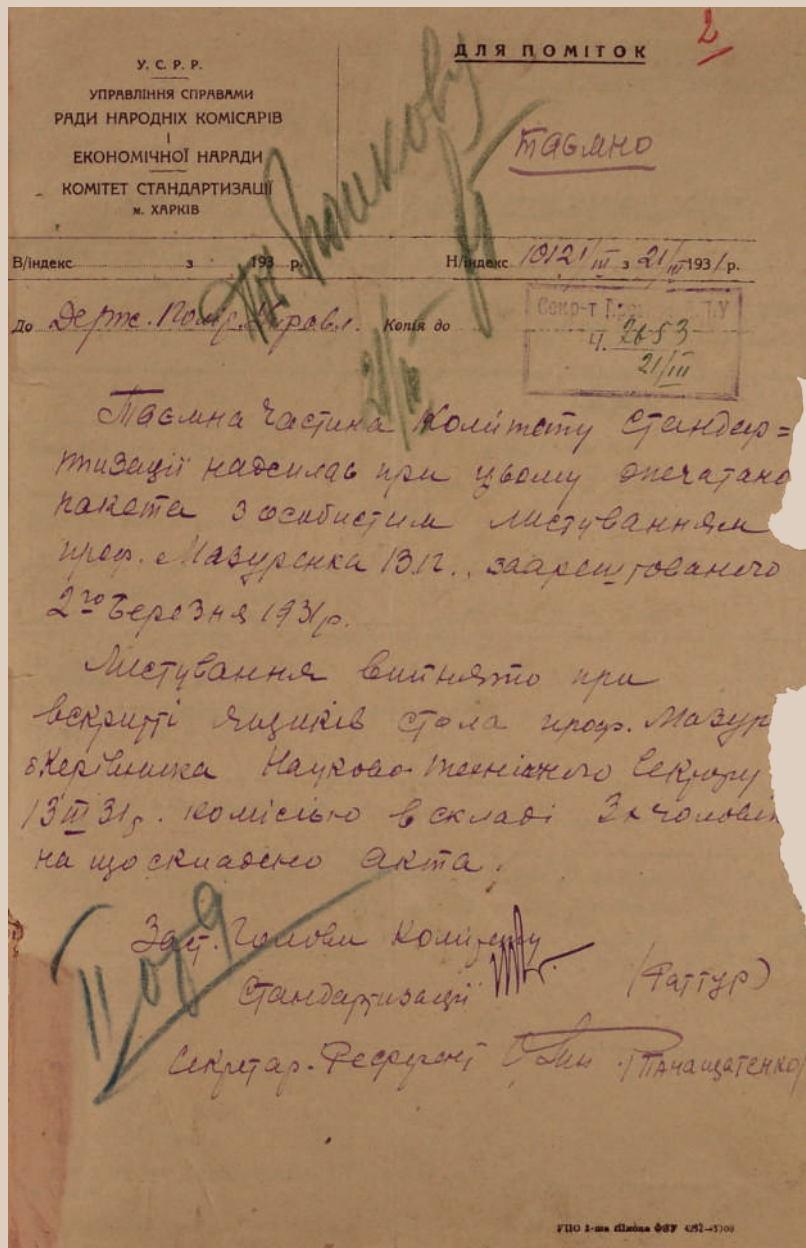 2
У. С. Р. Р.
УПРАВЛІННЯ СПРАВАМИ
РАДИ НАРОДНІХ КОМІСАРІВ
І
ЕКОНОМІЧНОЇ НАРАДИ
КОМІТЕТ СТАНДАРТИЗАЦІЇ
м. ХАРКІВ
ДЛЯ ПОМІТОК
таємно
В/індекс з 193 р.
Н/індекс 10121/III з 21/III 1931 р.
До Держ. Копія до
ч. 2653
21/III
21/III
Таємна Частина Комітету Стандар=
тизації надсилає при цьому опечатано
пакета з особистим листуванням
проф. Мазуренка В.П., заарештованого
2го Березня 1931р.
Листування вийнято при
вскритті ящиків стола проф. Мазур
Керівника Науково-технічного Сектору
13 III 31р. комісією в складі 3х чоловік
на що складено акта.
Заст. Голови Комітету
Стандартизації (Раттур)
Секретар
II
УПО